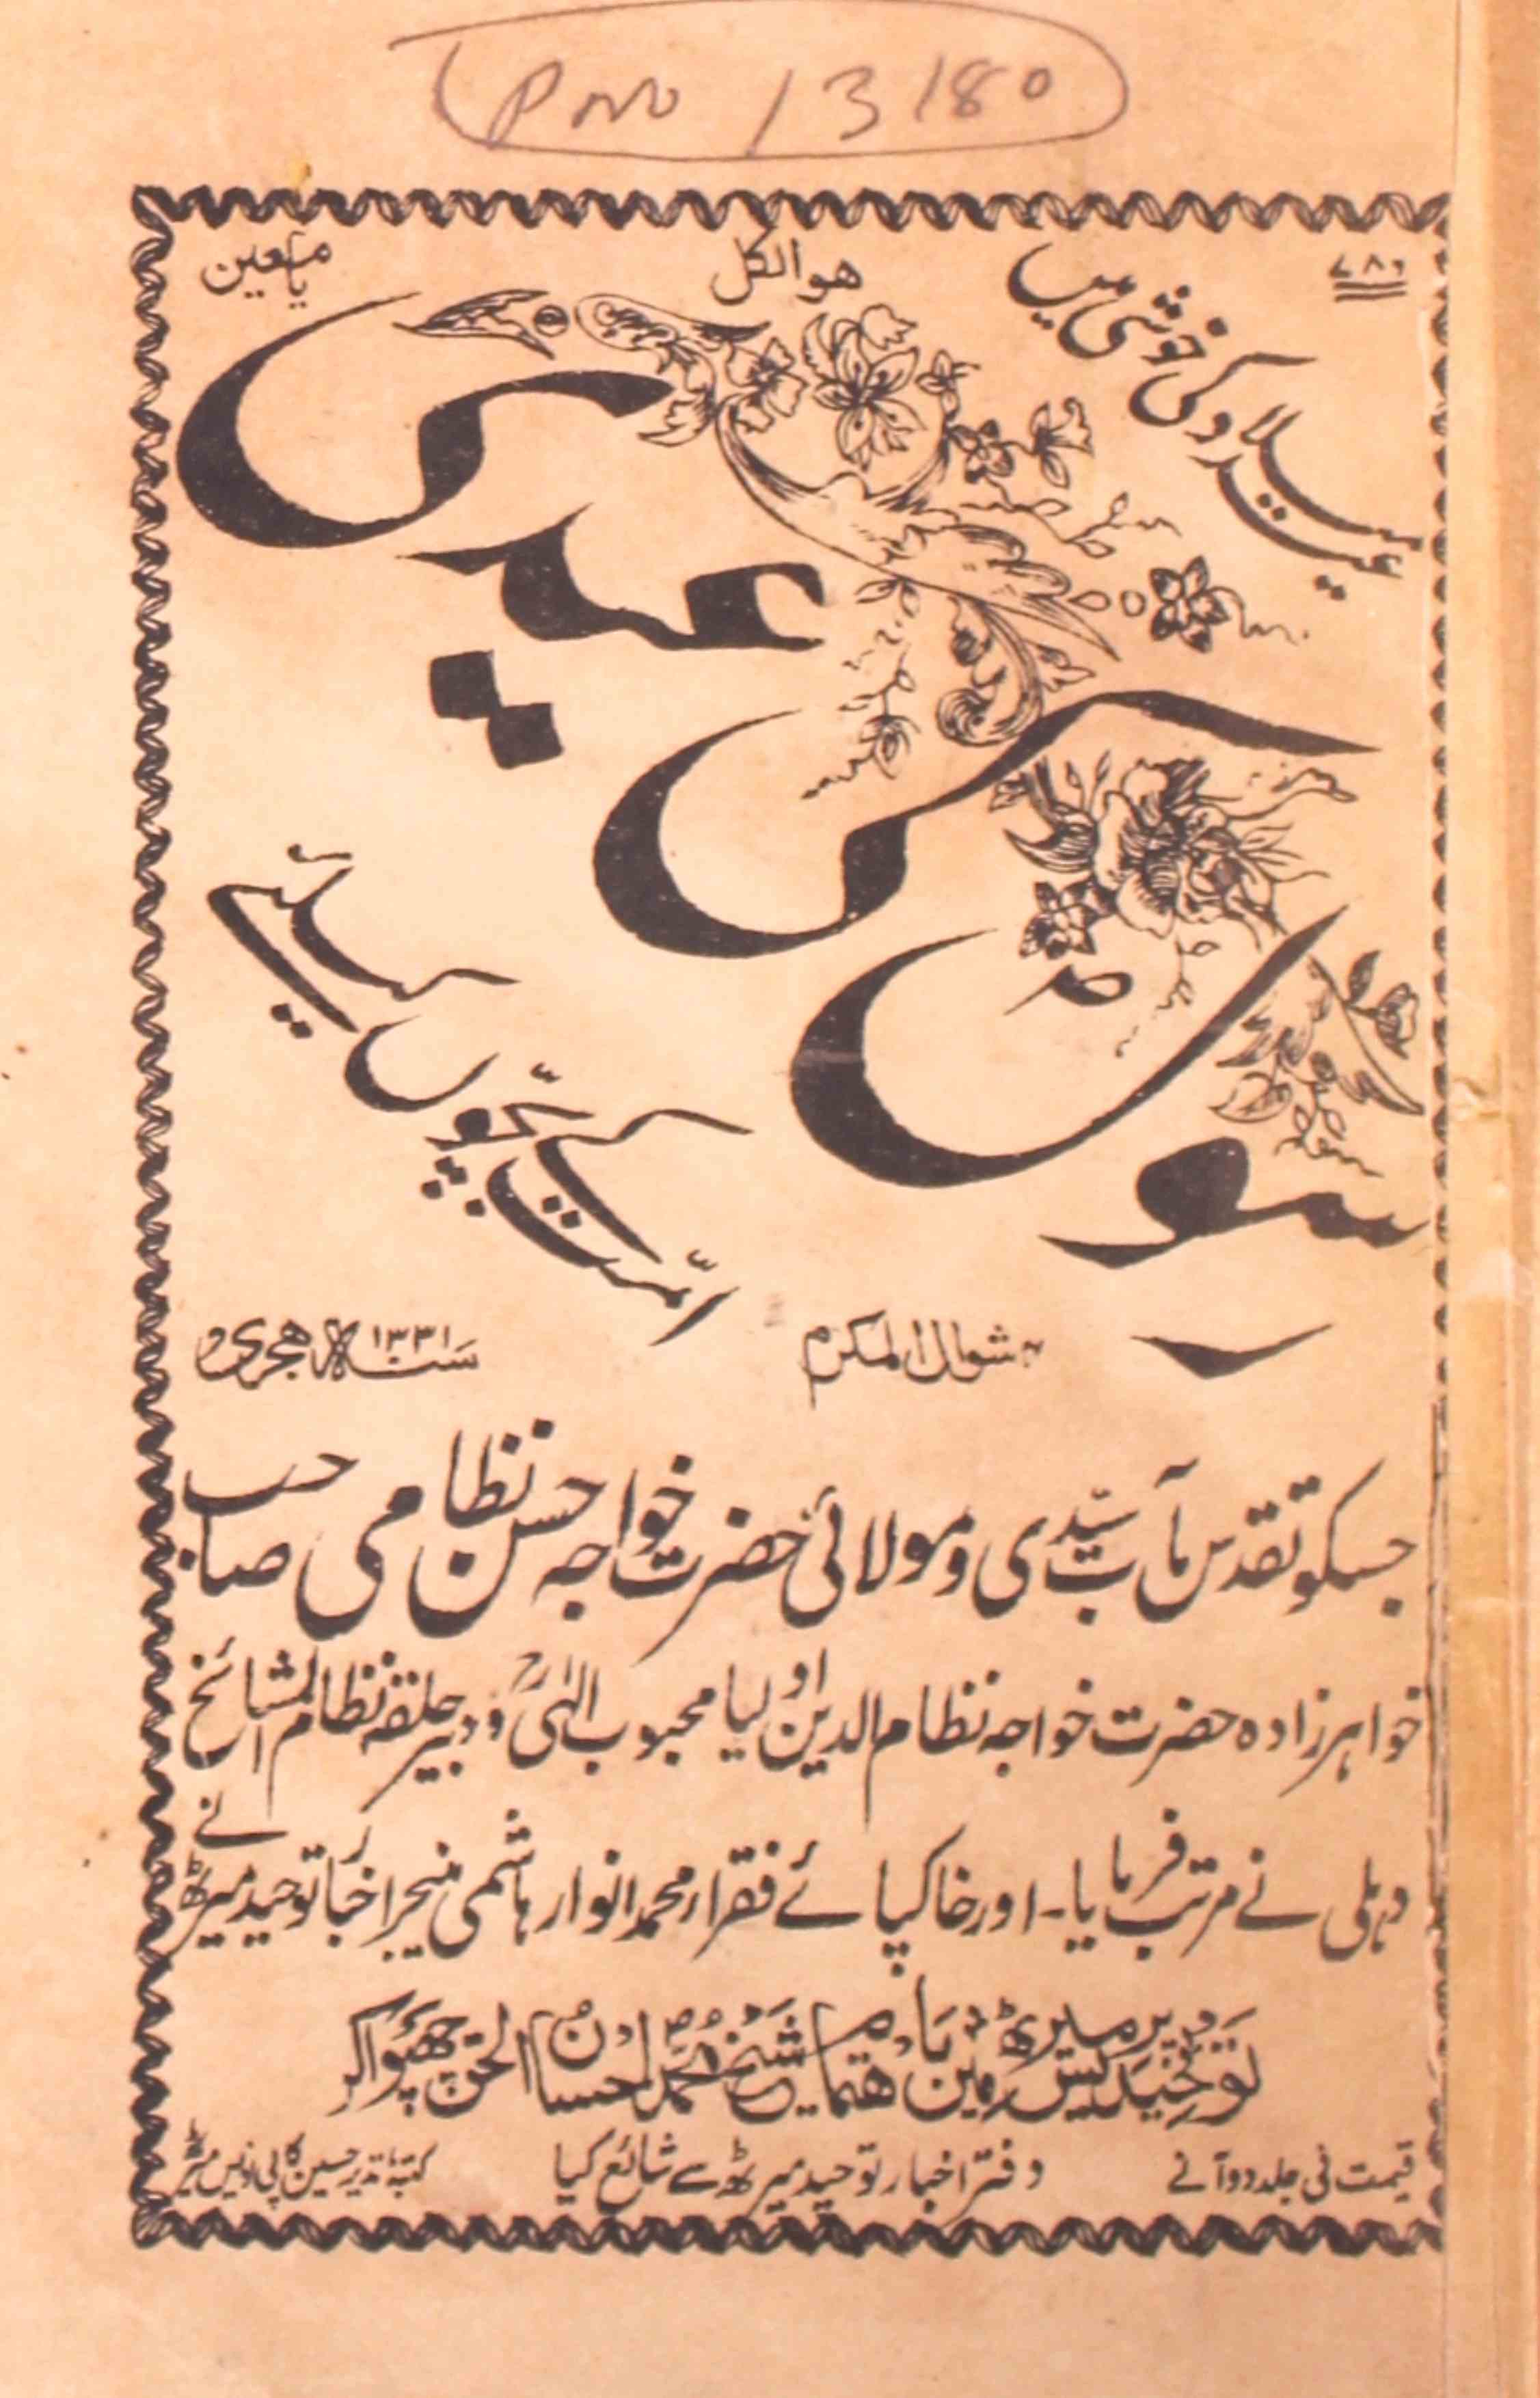 P No 13180
۷۸۶
هو الکل
یا معین
عید میلاد کی خوشی میں
رسولؐ کی عیدی
امّت کے بچّوں کے لئے
شوال المکرم
سنہ ۱۳۳۱ هجری
جسکو تقدس مآب سیّدی و مولائی حضرت خواجہ حسن نظامی صاحب
خواہرزادہ حضرت خواجہ نظام الدین اولیا محبوب الٰہیؒ و دبیر حلقہ نظام المشائخ
دہلی نے مرتب فرمایا۔ اور خاکپائے فقراء محمد انوار ہاشمی منیجر اخبار توحید میرٹھ نے
توحید پریس میرٹھ میں باہتمام شیخ محمد احسان الحق چھپواکر
دفتر اخبار توحید میرٹھ سے شائع کیا
قیمت فی جلد دو آنے
کتبہ نذیر حسین کاپی نویس میرٹھ